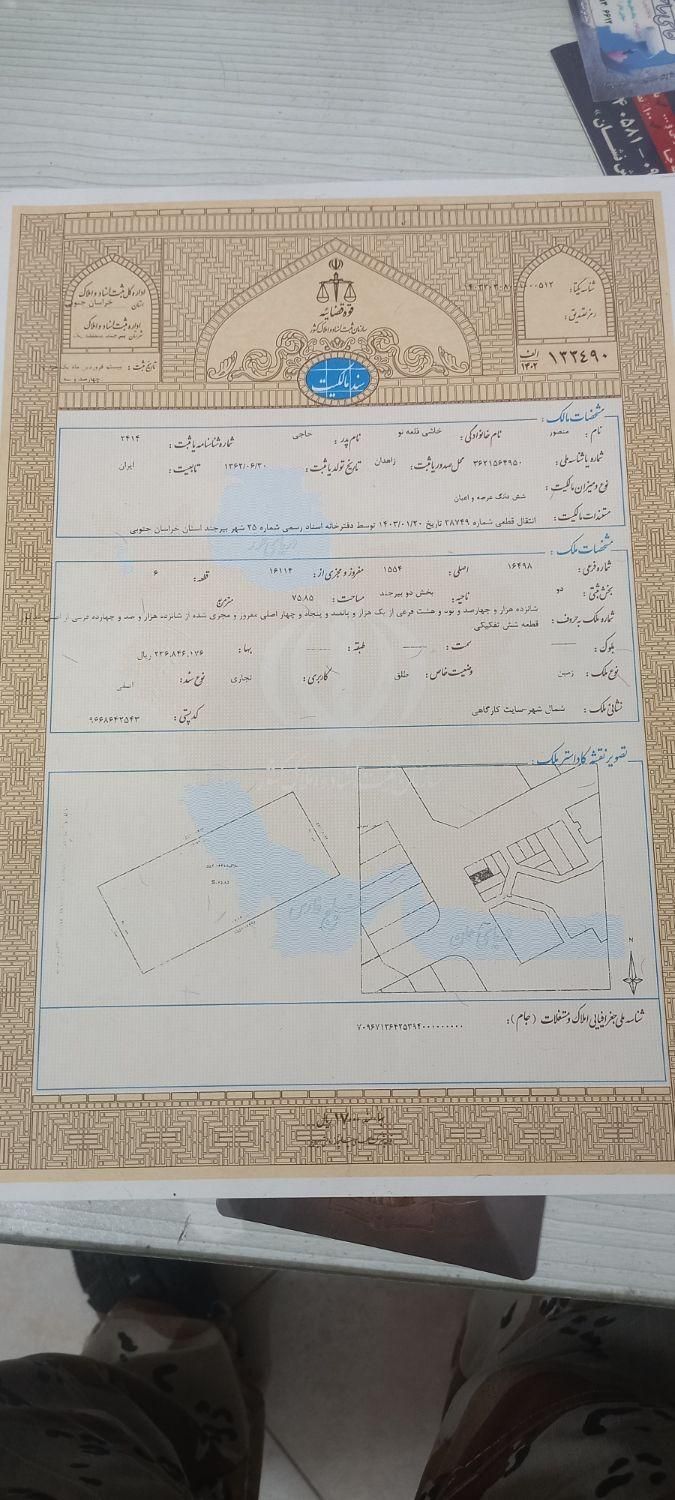 اداره کل ثبت اسناد و املاک
استان خراسان جنوبی
اداره ثبت اسناد و املاک
تاریخ ثبت : بیستم فروردین ماه یک هزار
چهارصد و سه
قوه قضائیه
سازمان ثبت اسناد و املاک کشور
شناسه یکتا :
رمز تصدیق :
۱۳۳۴۹۰ الف ۱۴۰۲
سند مالکیت
مشخصات مالک :
نام : منصور نام خانوادگی : خاشی قلعه نو نام پدر : حاجی شماره شناسنامه یا ثبت : ۲۴۱۴
شماره یا شناسه ملی : ۳۶۲۱۵۶۴۹۵۰ محل صدور یا ثبت : زاهدان تاریخ تولد یا ثبت : ۱۳۶۲/۰۶/۳۰ تابعیت : ایران
نوع و میزان مالکیت : شش دانگ عرصه و اعیان
مستندات مالکیت : انتقال قطعی شماره ۲۸۷۴۹ تاریخ ۱۴۰۳/۰۱/۲۰ توسط دفترخانه اسناد رسمی شماره ۲۵ شهر بیرجند استان خراسان جنوبی
مشخصات ملک :
شماره فرعی : ۱۶۴۹۸ اصلی : ۱۵۵۴ مفروز و مجزی از : ۱۶۱۱۴ قطعه : ۶
بخش ثبتی : دو ناحیه : بخش دو بیرجند مساحت : ۷۵.۸۵ مترمربع
شماره ملک به حروف : شانزده هزار و چهارصد و نود و هشت فرعی از یک هزار و پانصد و پنجاه و چهار اصلی مفروز و مجزی شده از شانزده هزار و صد و چهارده فرعی از اصلی
قطعه شش تفکیکی
بلوک : سمت : طبقه : بها : ۲۳۶,۸۴۶,۱۷۶ ریال
نوع ملک : زمین وضعیت خاص : طلق کاربری : تجاری نوع سند : اصلی
نشانی ملک : شمال شهر-سایت کارگاهی کد پستی : ۹۶۶۸۶۴۲۵۴۳
تصویر نقشه کاداستر ملک :
دریای آرمان
N
شناسه ملی جغرافیایی املاک و مستغلات (جام) : ۷۰۹۶۷۱۳۶۴۲۵۳۹۴۰۰۱۰۰۰۰۰۰